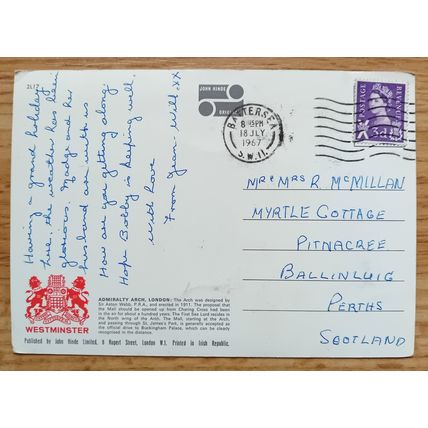 2L17
Having a grand holiday
here, the weather has been
glorious. Madge and her
husband are with us
How are you getting along.
Hope Bobby is keeping well.
With love
From Jean. Will. xx
JOHN HINDE
ORIGINAL
BATTERSEA
8 15PM
18 JLY
1967
S.W.11.
POSTAGE
REVENUE
3d
MR & MRS R. MCMILLAN
MYRTLE COTTAGE
PITNACREE
BALLINLUIG
PERTHS
SCOTLAND
WESTMINSTER
ADMIRALTY ARCH, LONDON: The Arch was designed by
Sir Aston Webb, P.R.A., and erected in 1911. The proposal that
the Mall should be opened up from Charing Cross had been
in the air for about a hundred years. The First Sea Lord resides in
the North wing of the Arch. The Mall, starting at the Arch,
and passing through St. James's Park, is generally accepted as
the official drive to Buckingham Palace, which can be clearly
recognised in the distance.
Published by John Hinde Limited, 6 Rupert Street, London W.1. Printed in Irish Republic.